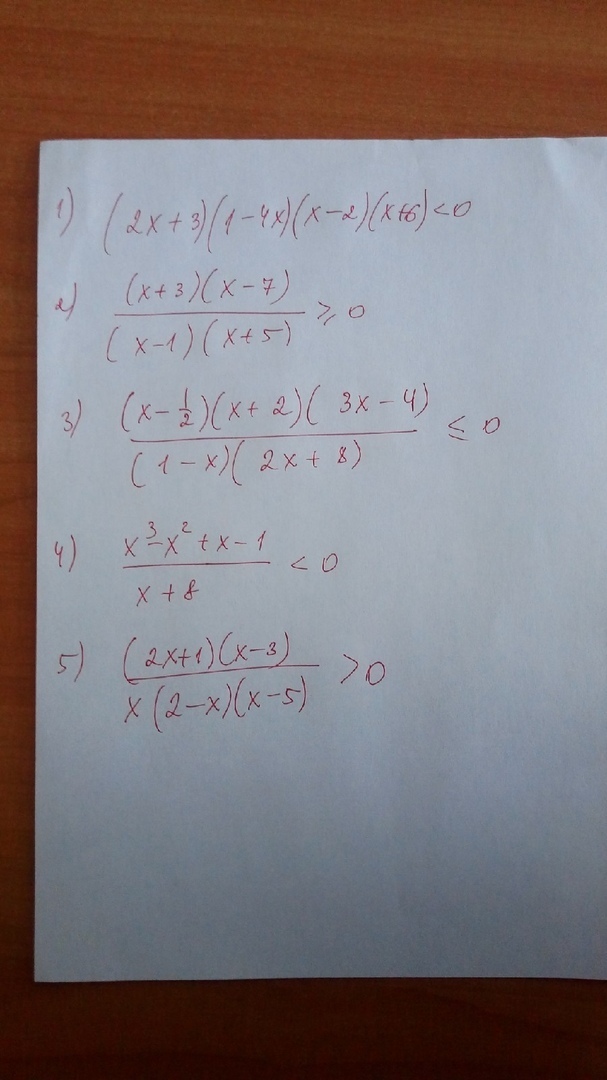 1) (2x+3)(1-4x)(x-2)(x+6)<0
2) (x+3)(x-7)
(x-1)(x+5) ≥ 0
3) (x-1/2)(x+2)(3x-4)
(1-x)(2x+8) ≤ 0
4) x³-x²+x-1
x+8 < 0
5) (2x+1)(x-3)
x(2-x)(x-5) > 0